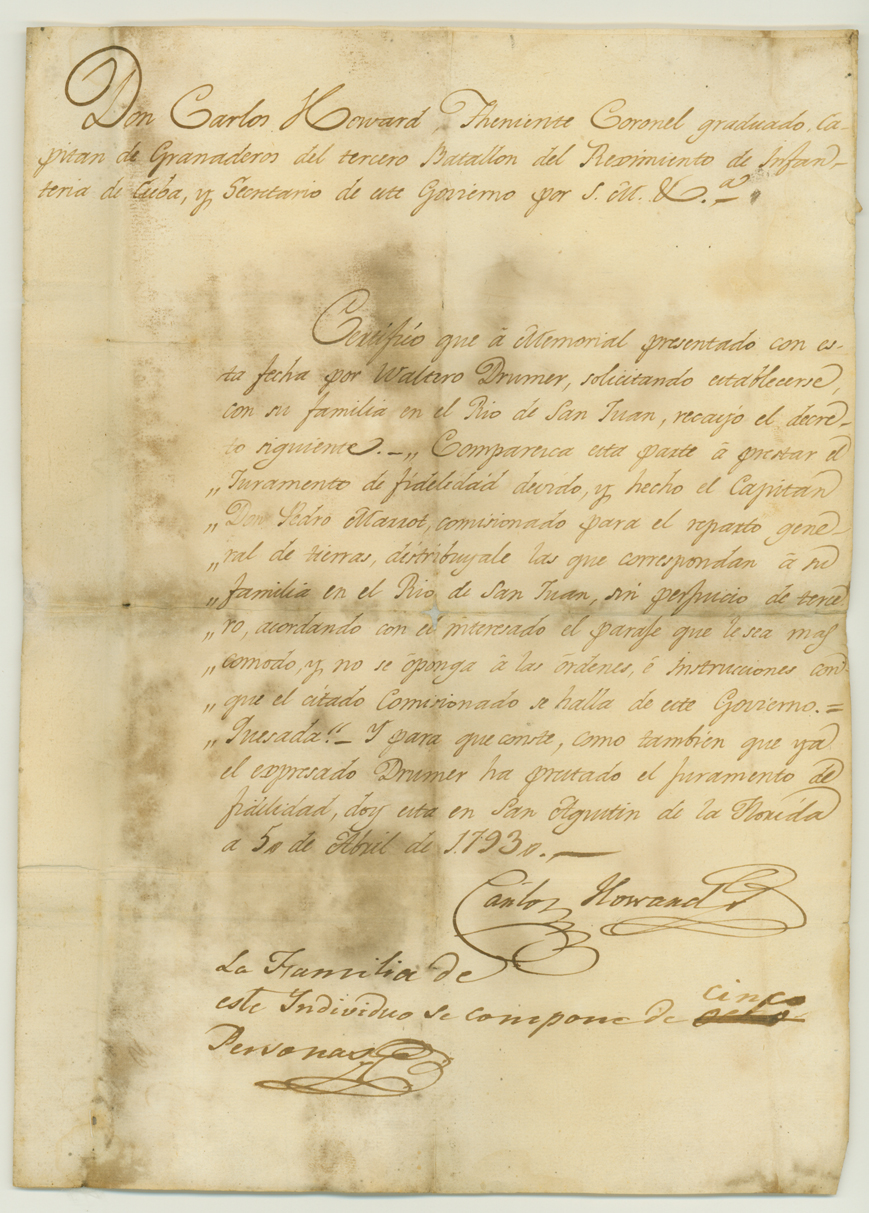 Don Carlos Howard, Theniente Coronel graduado, Ca-
pitan de Granaderos del tercero Batallon del Reximiento de Infan-
teria de Cuba, y Secretario de este Govierno por S. M. &c.ª
Certifico que â Memorial presentado con es-
ta fecha por Waltero Drumer, solicitando establecerse,
con su familia en el Rio de San Juan, recayó el decre-
to siguiente. — „ Comparezca esta parte â prestar el
„ Juramento de fidelidad devido, y hecho el Capitan
„ Don Pedro Marrot, comisionado para el reparto gene-
„ ral de tierras, distribuyale las que correspondan â su
„ familia en el Rio de San Juan, sin perjuicio de terce-
„ ro, acordando con el interesado el paraje que le sea mas
„ comodo, y no se ôponga â las ôrdenes, é instrucciones con
„ que el citado Comisionado se halla de este Govierno. =
„ Quesada“ — Y para que conste, como tambien que ya
el expresado Drumer ha prestado el Juramento de
fidelidad, doy esta en San Agustin de la Florida
a 5„ de Abril de 1.793„. —
Carlos Howard
La Familia de
este Individuo se compone de cinco ocho
Personas